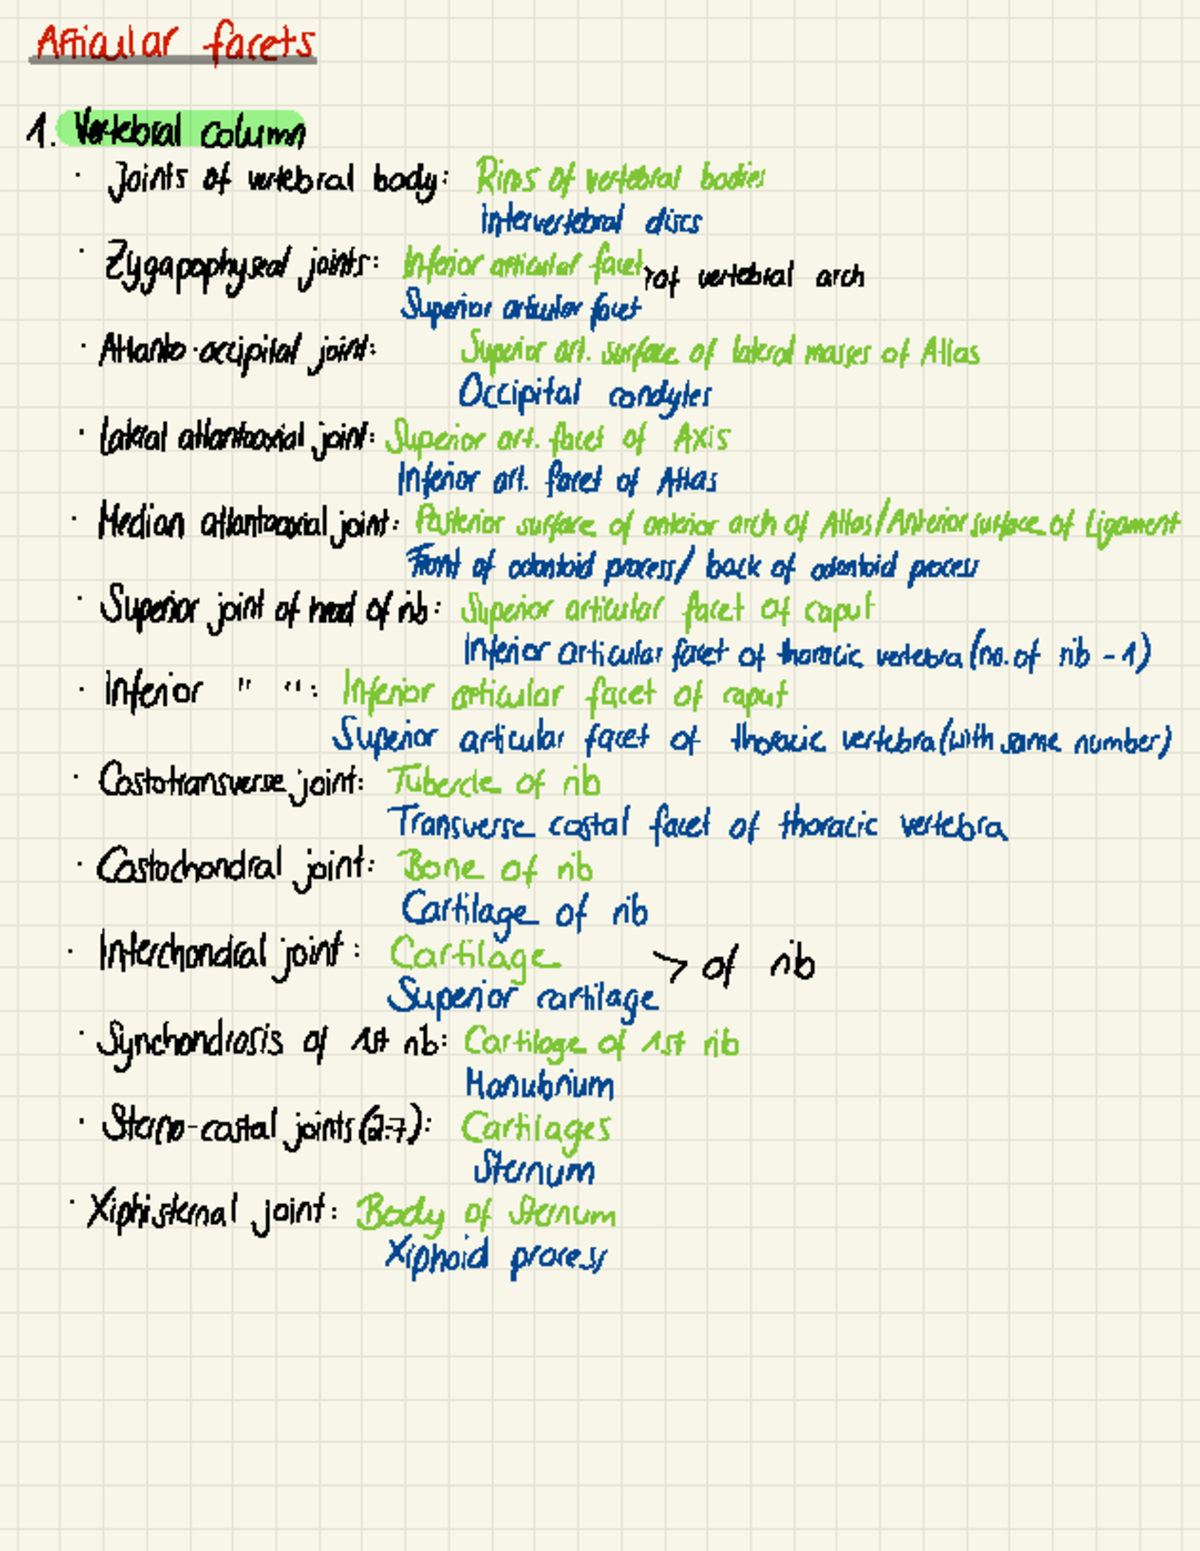 Articular facets
1. Vertebral column
· Joints of vertebral body: Rims of vertebral bodies
Intervertebral discs
· Zygapophyseal joints: Inferior articular facet > of vertebral arch
Superior articular facet
· Atlanto-occipital joint: Superior art. surface of lateral masses of Atlas
Occipital condyles
· Lateral atlantoaxial joint: Superior art. facet of Axis
Inferior art. facet of Atlas
· Median atlantoaxial joint: Posterior surface of anterior arch of Atlas/Anterior surface of Ligament
Front of odontoid process/ back of odontoid process
· Superior joint of head of rib: Superior articular facet of caput
Inferior articular facet of thoracic vertebra (no. of rib - 1)
· Inferior " ": Inferior articular facet of caput
Superior articular facet of thoracic vertebra (with same number)
· Costotransverse joint: Tubercle of rib
Transverse costal facet of thoracic vertebra
· Costochondral joint: Bone of rib
Cartilage of rib
· Interchondral joint: Cartilage > of rib
Superior cartilage
· Synchondrosis of 1st rib: Cartilage of 1st rib
Manubrium
· Sterno-costal joints (2-7): Cartilages
Sternum
· Xiphisternal joint: Body of Sternum
Xiphoid process